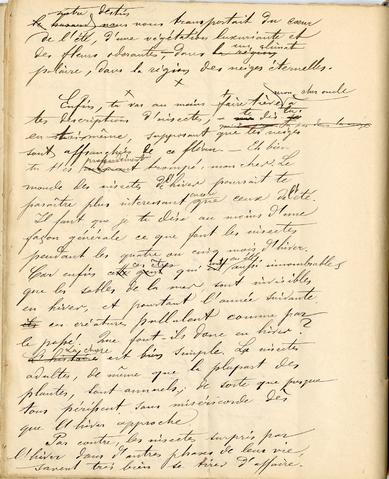 notre destin
nous nous transportait du cœur
de l'été, d'une végétation luxuriante et
des fleurs odorantes, dans un climat
polaire, dans la région des neiges éternelles.
Enfin, tu vas au moins faire trêve à
mon cher oncle
tes descriptions d'insectes, te dis-tu
en toi-même, supposant que les neiges
sont affranchies de ce fléau. Eh bien
tu t'es trompé, mon cher. Le
monde des insectes d'hiver pourrait te
paraître plus interessant que ceux d'été.
Il faut que je te dise au moins d'une
façon générale ce que font les insectes
pendant les quatre ou cinq mois d'hiver.
Car enfin ces êtres qui aussi innombrables
que les sables de la mer sont invisibles
en hiver, et pourtant l'année suivante
en créature pullulant comme par
le passé. Que font-ils donc en hiver?
La chose est bien simple. Les insectes
adultes, de même que la plupart des
plantes, sont annuels; de sorte que presque
tous périssent sans miséricorde dès
que l'hiver approche.
Par contre, les insectes surpris par
l'hiver dans d'autres phases de leur vie,
savent très bien se tirer d'affaire.